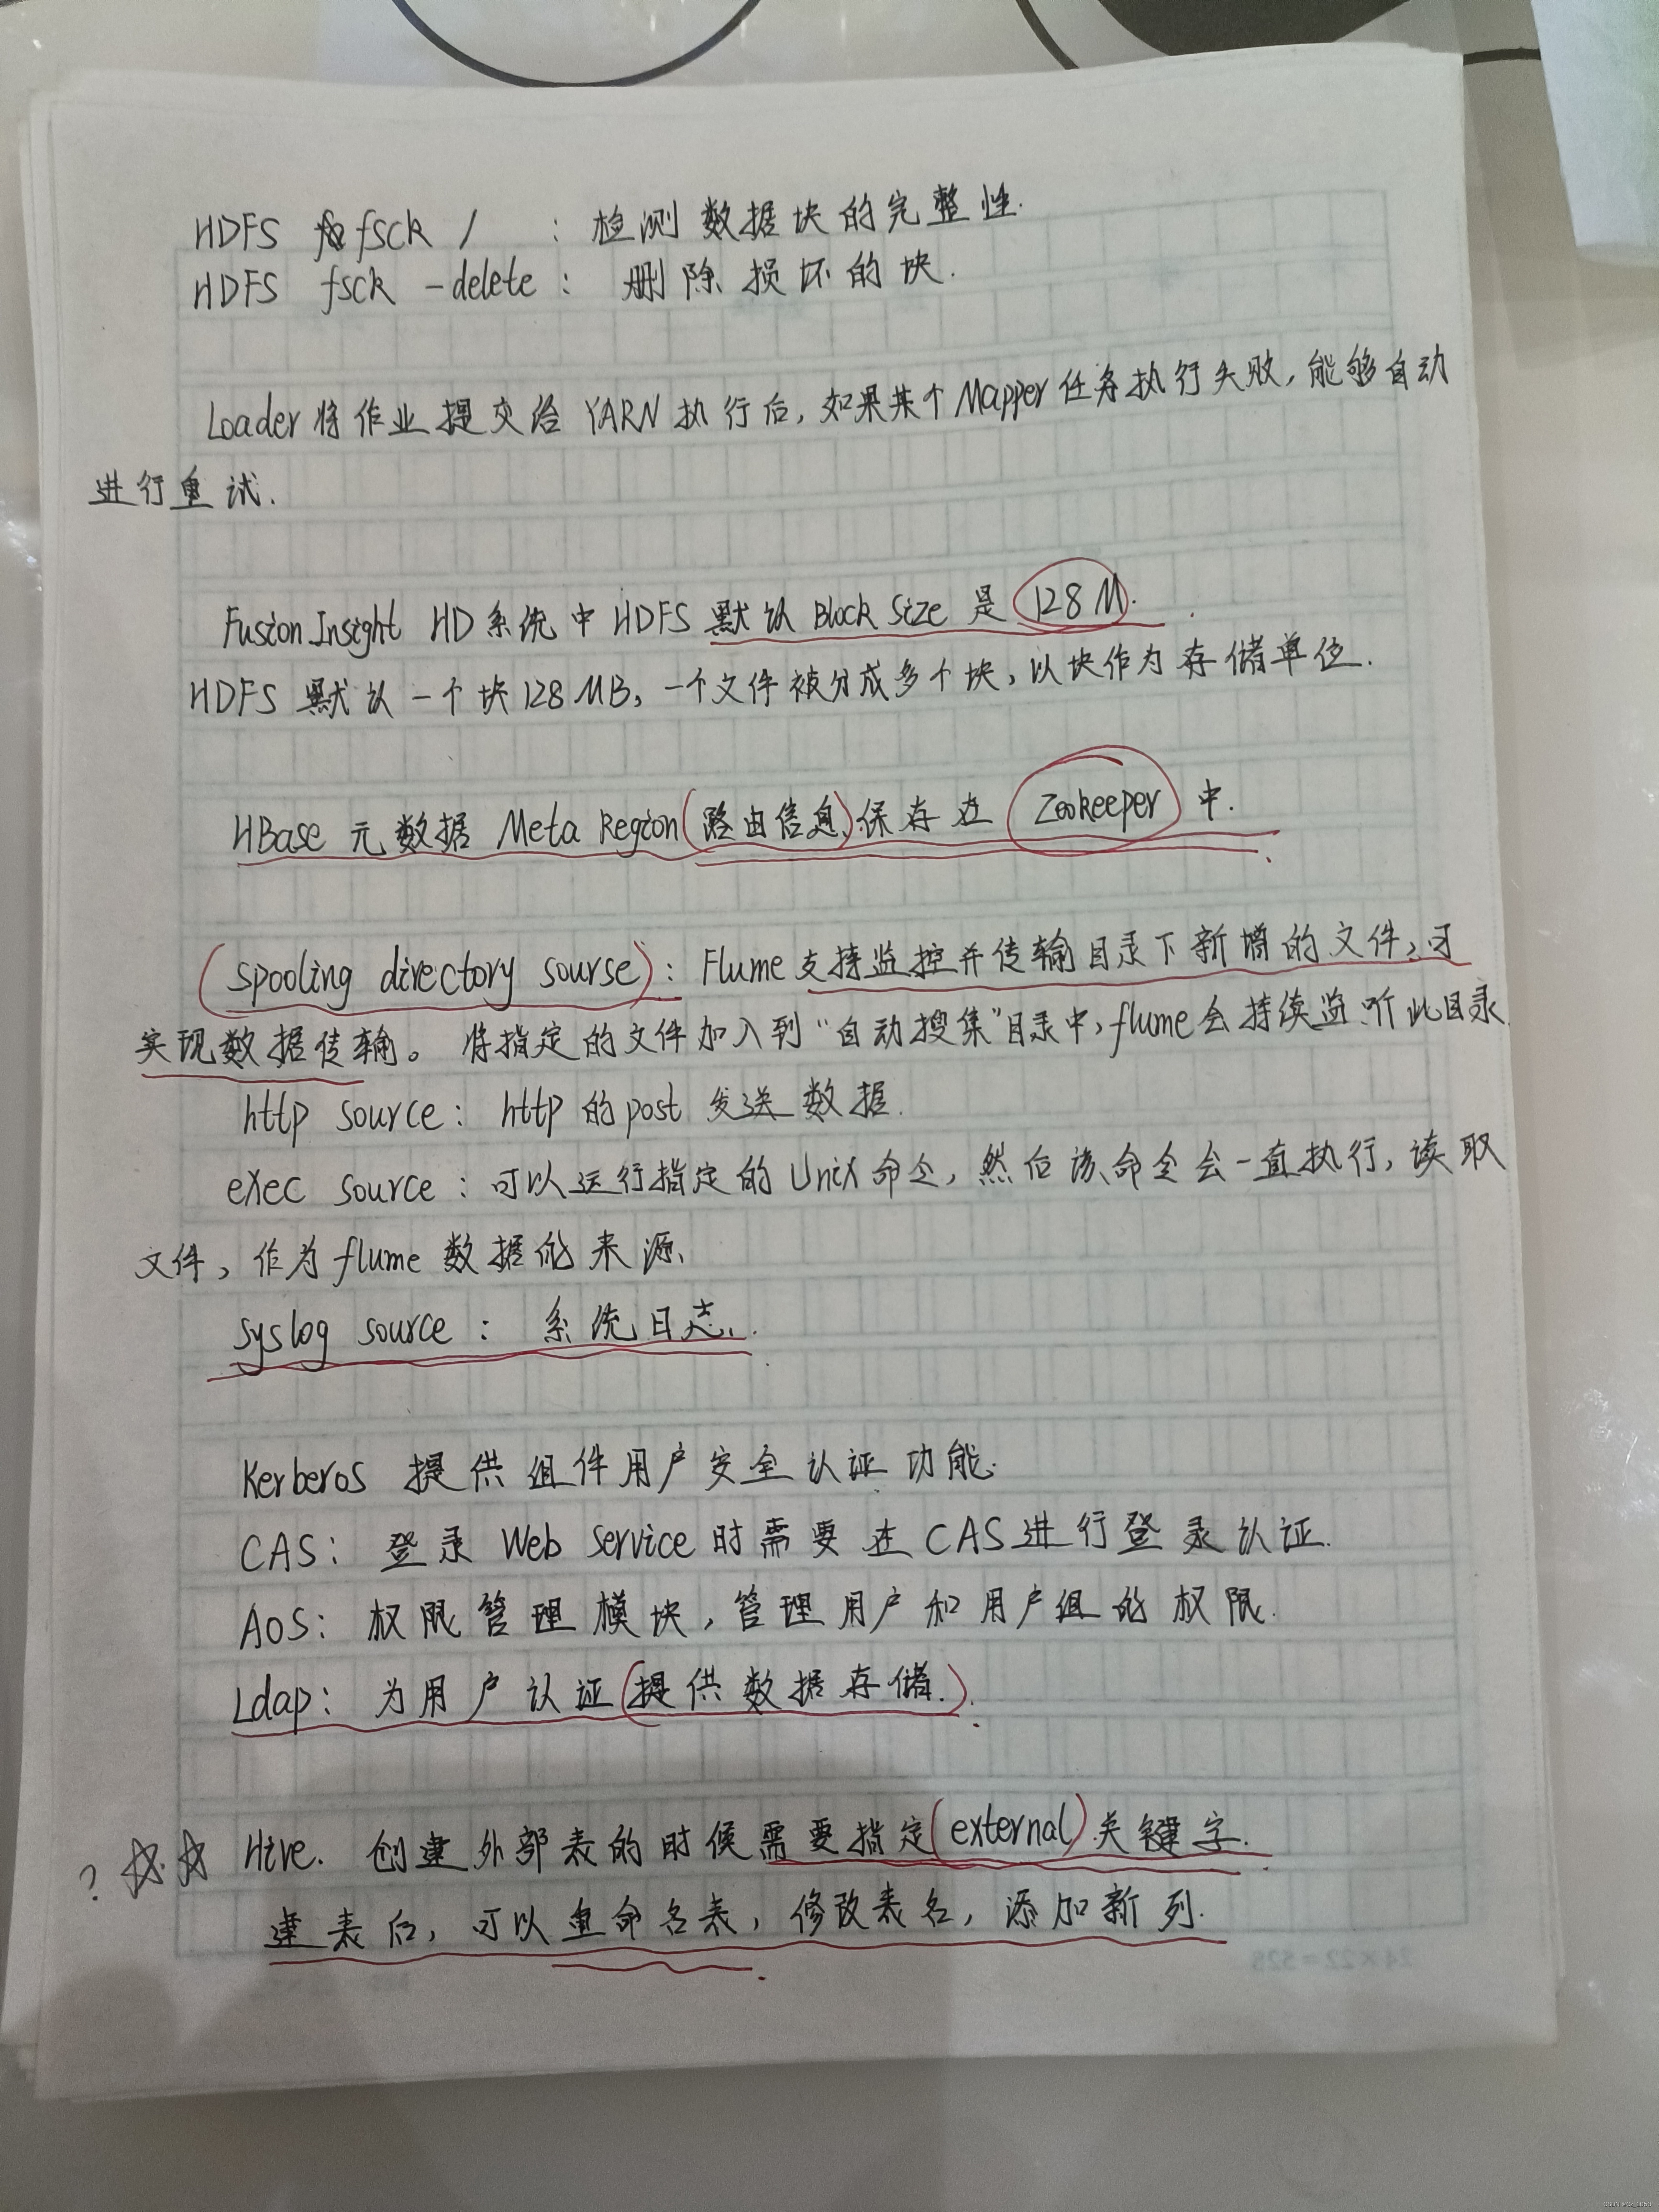 HDFS fsck / : 检测数据块的完整性.
HDFS fsck -delete : 删除损坏的块.
Loader将作业提交给YARN执行后,如果某个Mapper任务执行失败,能够自动
进行重试.
FusionInsight HD系统中HDFS默认Block Size是128M.
HDFS默认一个块128MB,一个文件被分成多个块,以块作为存储单位.
HBase元数据Meta Region(路由信息)保存在Zookeeper中.
(spooling directory sourse): Flume支持监控并传输目录下新增的文件,可
实现数据传输。将指定的文件加入到“自动搜集”目录中,flume会持续监听此目录.
http source: http的post发送数据.
exec source: 可以运行指定的Unix命令,然后该命令会一直执行,读取
文件,作为flume数据的来源.
syslog source: 系统日志.
Kerberos提供组件用户安全认证功能.
CAS: 登录Web Service时需要在CAS进行登录认证.
AOS: 权限管理模块,管理用户和用户组的权限.
Ldap: 为用户认证(提供数据存储.).
? ☆☆ Hive. 创建外部表的时候需要指定(external)关键字.
建表后,可以重命名表,修改表名,添加新列.
24×22=528